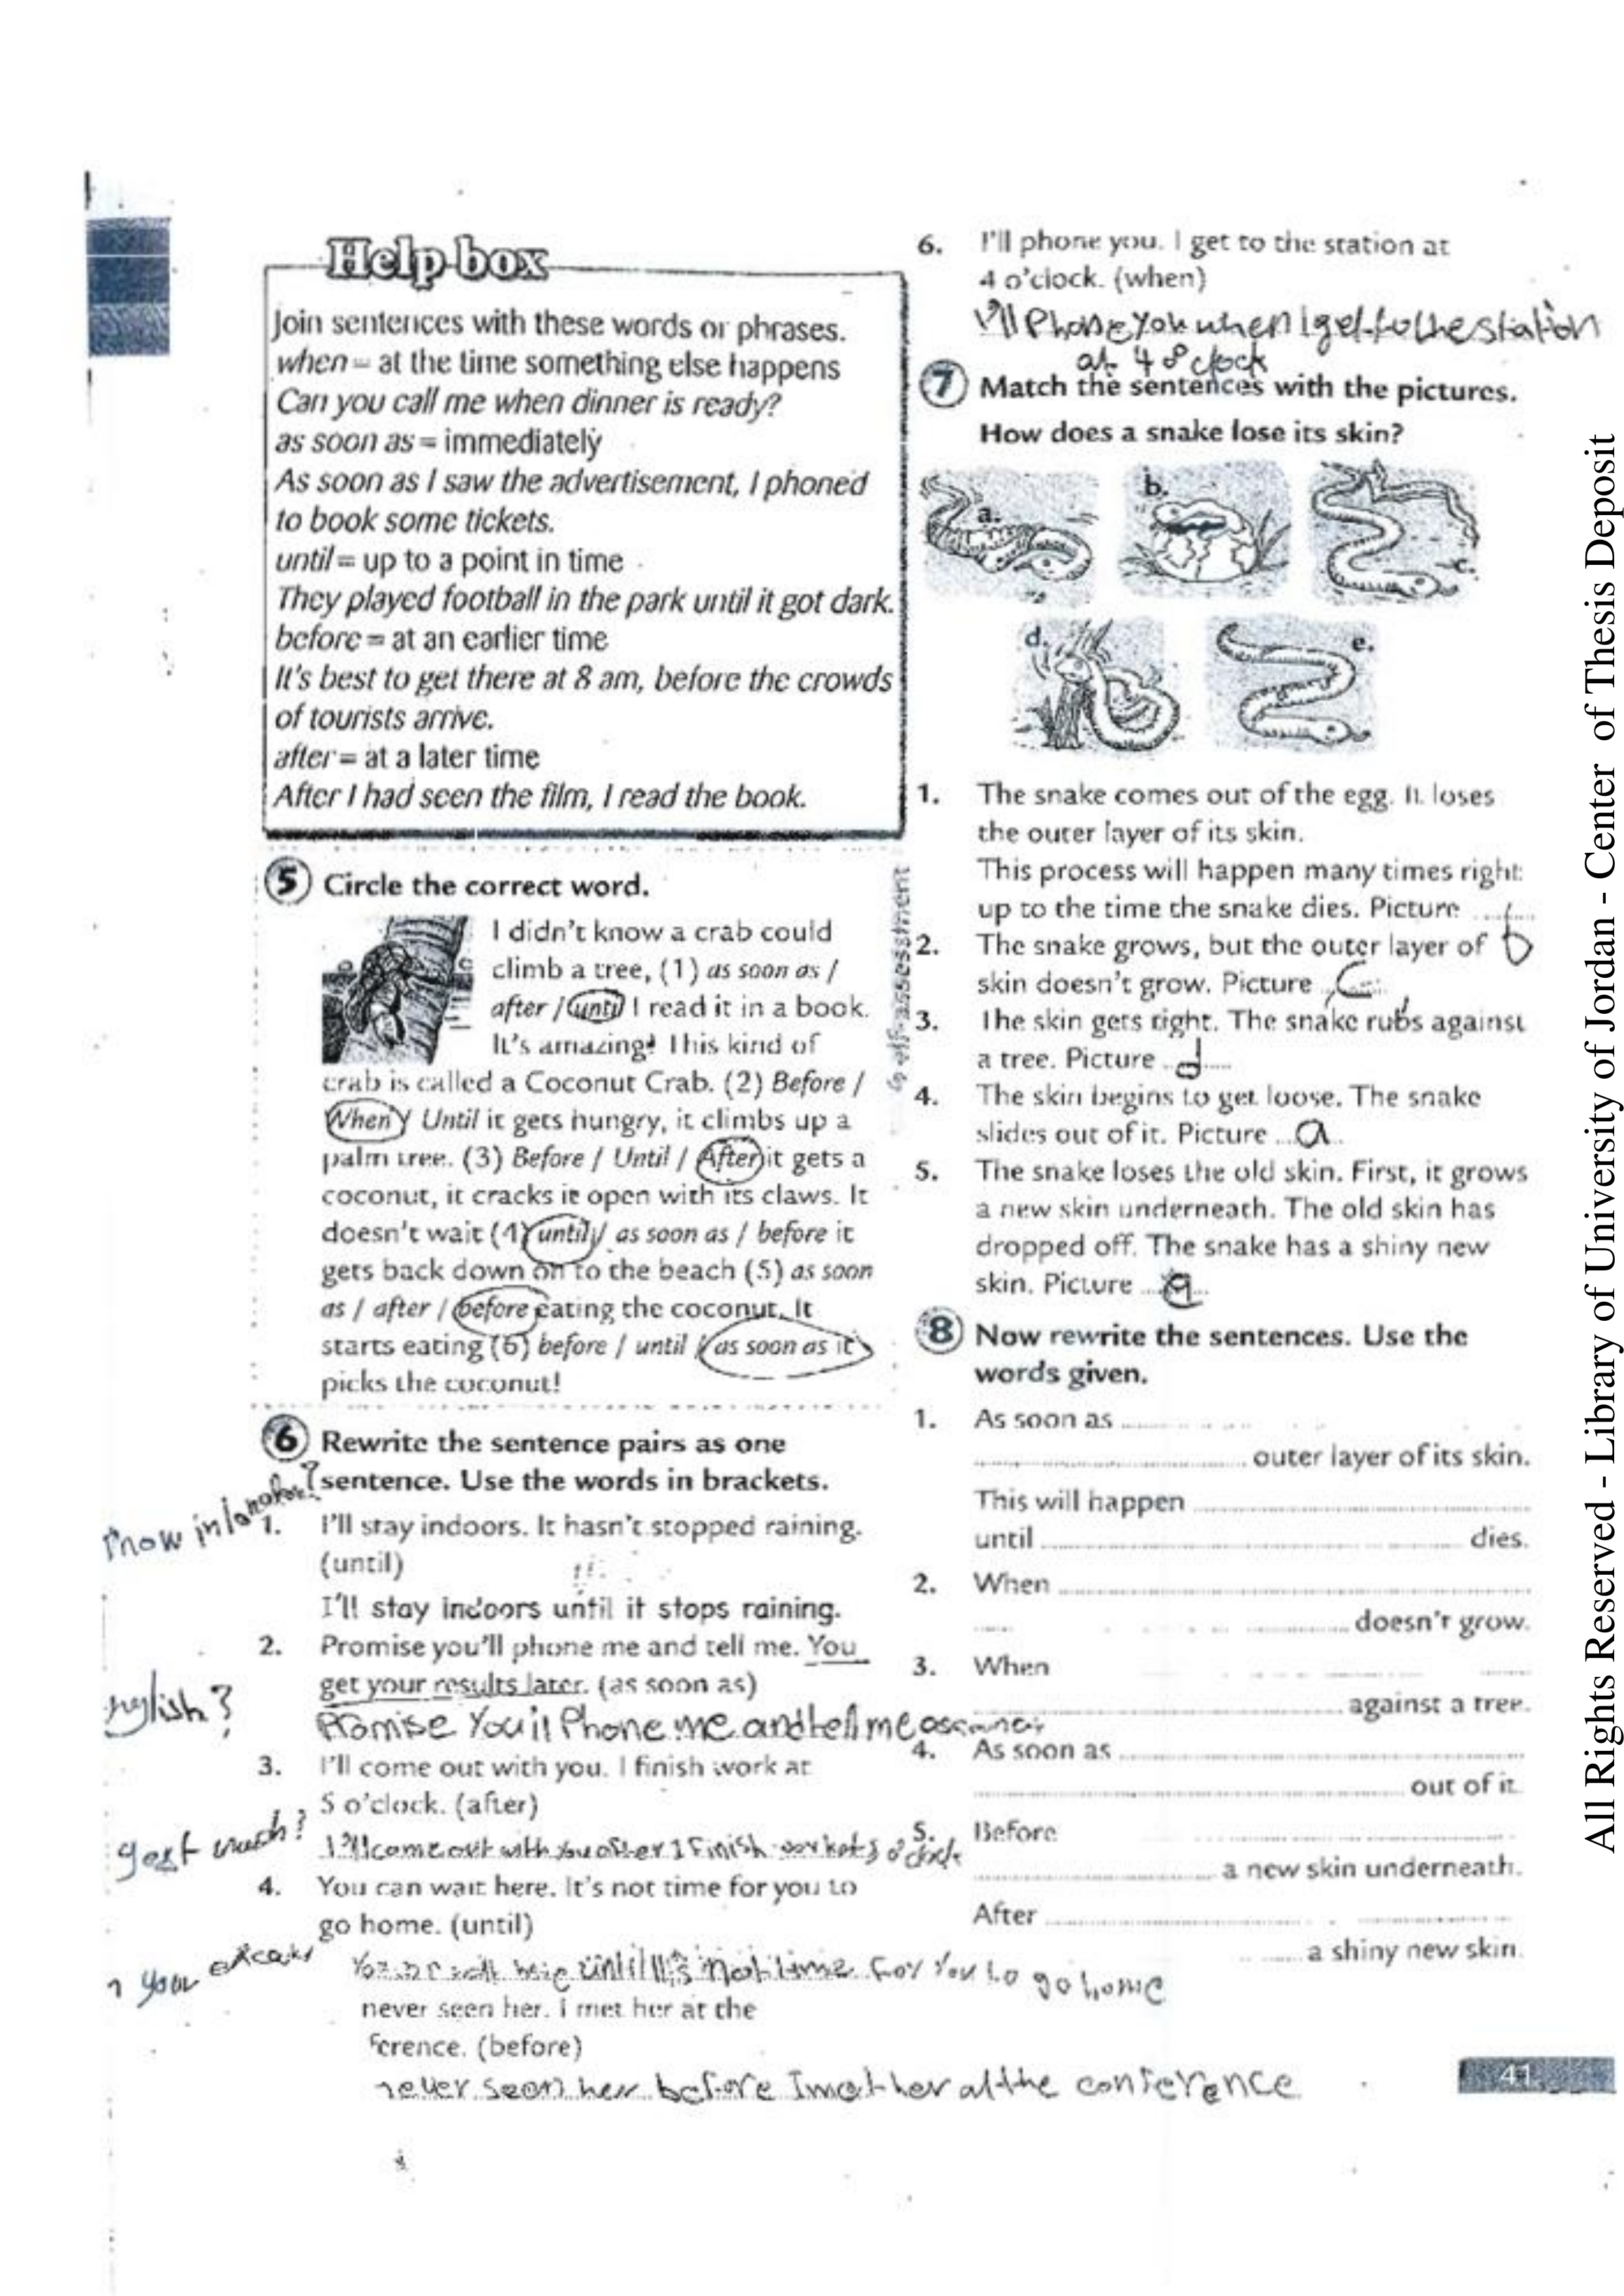 Help box
Join sentences with these words or phrases.
when = at the time something else happens
Can you call me when dinner is ready?
as soon as = immediately
As soon as I saw the advertisement, I phoned
to book some tickets.
until = up to a point in time
They played football in the park until it got dark.
before = at an earlier time
It's best to get there at 8 am, before the crowds
of tourists arrive.
after = at a later time
After I had seen the film, I read the book.
5 Circle the correct word.
I didn't know a crab could
climb a tree, (1) as soon as /
after / until I read it in a book.
It's amazing! This kind of
crab is called a Coconut Crab. (2) Before /
When / Until it gets hungry, it climbs up a
palm tree. (3) Before / Until / After it gets a
coconut, it cracks it open with its claws. It
doesn't wait (4) until / as soon as / before it
gets back down on to the beach (5) as soon
as / after / before eating the coconut. It
starts eating (6) before / until / as soon as it
picks the coconut!
6 Rewrite the sentence pairs as one
sentence. Use the words in brackets.
1. I'll stay indoors. It hasn't stopped raining.
(until)
I'll stay indoors until it stops raining.
2. Promise you'll phone me and tell me. You
get your results later. (as soon as)
Promise You'll Phone me and tell me as
3. I'll come out with you. I finish work at
5 o'clock. (after)
I'll come out with you after I Finish work at 5 o'clock
4. You can wait here. It's not time for you to
go home. (until)
until It's not time For You to go home
never seen her. I met her at the
ference. (before)
never seen her before I met her at the conference
6. I'll phone you. I get to the station at
4 o'clock. (when)
I'll Phone You when I get to the station
at 4 o'clock
7 Match the sentences with the pictures.
How does a snake lose its skin?
a.
b.
c.
d.
e.
self-assessment
1. The snake comes out of the egg. It loses
the outer layer of its skin.
This process will happen many times right
up to the time the snake dies. Picture
b
2. The snake grows, but the outer layer of
skin doesn't grow. Picture C
3. The skin gets tight. The snake rubs against
a tree. Picture d
4. The skin begins to get loose. The snake
slides out of it. Picture a
5. The snake loses the old skin. First, it grows
a new skin underneath. The old skin has
dropped off. The snake has a shiny new
skin. Picture
8 Now rewrite the sentences. Use the
words given.
1. As soon as
outer layer of its skin.
This will happen
until dies.
2. When
doesn't grow.
3. When
against a tree.
4. As soon as
out of it.
5. Before
a new skin underneath.
After
a shiny new skin.
41
All Rights Reserved - Library of University of Jordan - Center of Thesis Deposit